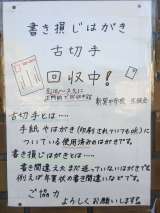 書き損じはがき
古切手
回収中!
古切手とは……
手紙やはがき(印刷されていても可)に
ついている使用済みのはがきです。
書き損じはがきとは……
書き間違え又まだ送っていないはがきでも
例えば年賀状の書き間違いなどです。
ご協力
よろしくお願いします。